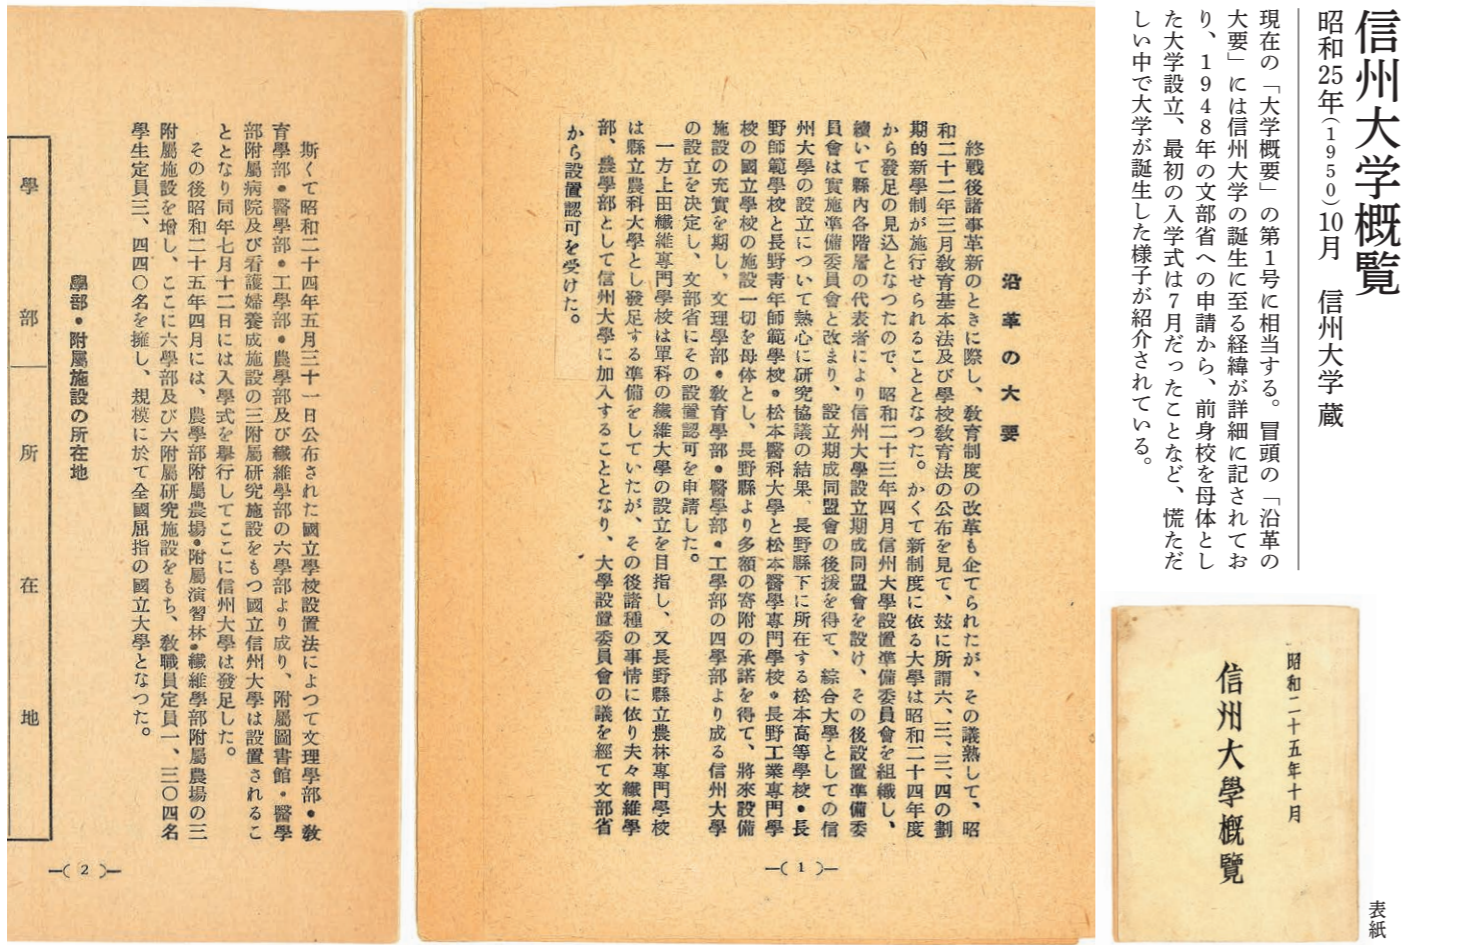 信州大学概覧
昭和25年（1950）10月　信州大学 蔵
現在の「大学概要」の第1号に相当する。冒頭の「沿革の
大要」には信州大学の誕生に至る経緯が詳細に記されてお
り、1948年の文部省への申請から、前身校を母体とし
た大学設立、最初の入学式は7月だったことなど、慌ただ
しい中で大学が誕生した様子が紹介されている。
昭和二十五年十月
信州大學概覽
表紙
沿革の大要
終戰後諸事革新のときに際し、敎育制度の改革も企てられたが、その議熟して、昭
和二十二年三月敎育基本法及び學校敎育法の公布を見て、玆に所謂六、三、三、四の劃
期的新學制が施行せられることとなつた。かくて新制度に依る大學は昭和二十四年度
から發足の見込となつたので、昭和二十三年四月信州大學設置準備委員會を組織し、
續いて縣內各階層の代表者により信州大學設立期成同盟會を設け、その後設置準備委
員會は實施準備委員會と改まり、設立期成同盟會の後援を得て、綜合大學としての信
州大學の設立について熱心に硏究協議の結果、長野縣下に所在する松本高等學校・長
野師範學校と長野靑年師範學校・松本醫科大學と松本醫學專門學校・長野工業專門學
校の國立學校の施設一切を母体とし、長野縣より多額の寄附の承諾を得て、將來設備
施設の充實を期し、文理學部・敎育學部・醫學部・工學部の四學部より成る信州大學
の設立を決定し、文部省にその設置認可を申請した。
一方上田纖維專門學校は單科の纖維大學の設立を目指し、又長野縣立農林專門學校
は縣立農科大學とし發足する準備をしていたが、その後諸種の事情に依り夫々纖維學
部、農學部として信州大學に加入することとなり、大學設置委員會の議を經て文部省
から設置認可を受けた。
—( 1 )—
斯くて昭和二十四年五月三十一日公布された國立學校設置法によつて文理學部・敎
育學部・醫學部・工學部・農學部及び纖維學部の六學部より成り、附屬圖書館・醫學
部附屬病院及び看護婦養成施設の三附屬硏究施設をもつ國立信州大學は設置されるこ
ととなり同年七月十二日には入學式を擧行してここに信州大學は發足した。
その後昭和二十五年四月には、農學部附屬農場・附屬演習林・纖維學部附屬農場の三
附屬施設を增し、ここに六學部及び六附屬硏究施設をもち、敎職員定員一、三〇四名
學生定員三、四四〇名を擁し、規模に於て全國屈指の國立大學となつた。
學部・附屬施設の所在地
學部
所在地
—( 2 )—